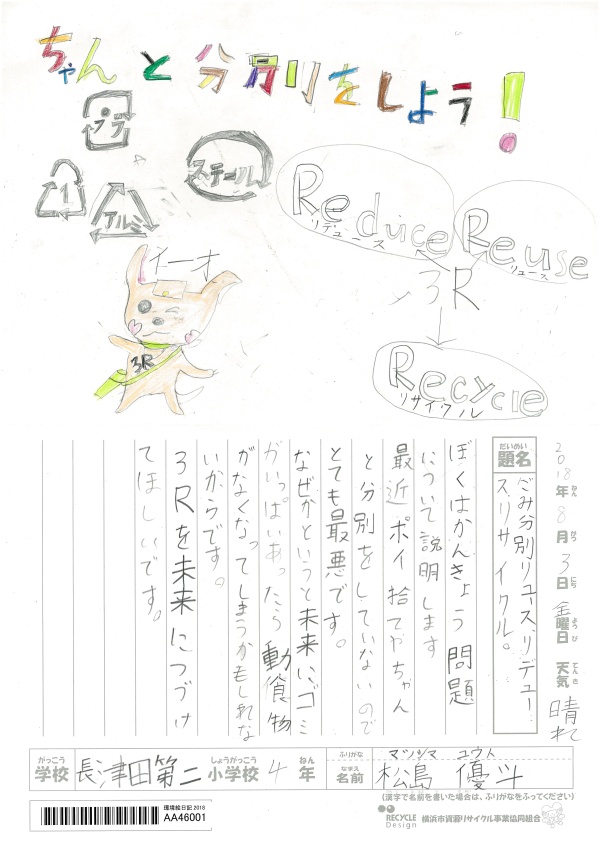 ちゃんと分別をしよう!
プラ
1
アルミ
スチール
Reduce
リデュース
Reuse
リユース
3R
Recycle
リサイクル
イーオ
3R
2018年8月3日金曜日 天気 晴れ
ねん がつ にち ようび てんき
だいめい
題名
ごみ分別リユースリデュー
スリサイクル。
ぼくはかんきょう問題
について説明します
最近ポイ捨てやちゃん
と分別をしていないので
とても最悪です。
なぜかというと未来にゴミ
がいっぱいあったら動食物
がなくなってしまうかもしれな
いからです。
3Rを未来につづけ
てほしいです。
がっこう しょうがっこう ねん
学校 長津田第二小学校 4年
ふりがな マツシマ ユウト
なまえ
名前 松島 優斗
(漢字で名前を書いた場合は、ふりがなをふってください)
環境絵日記2018
AA46001
RECYCLE Design
横浜市資源リサイクル事業協同組合